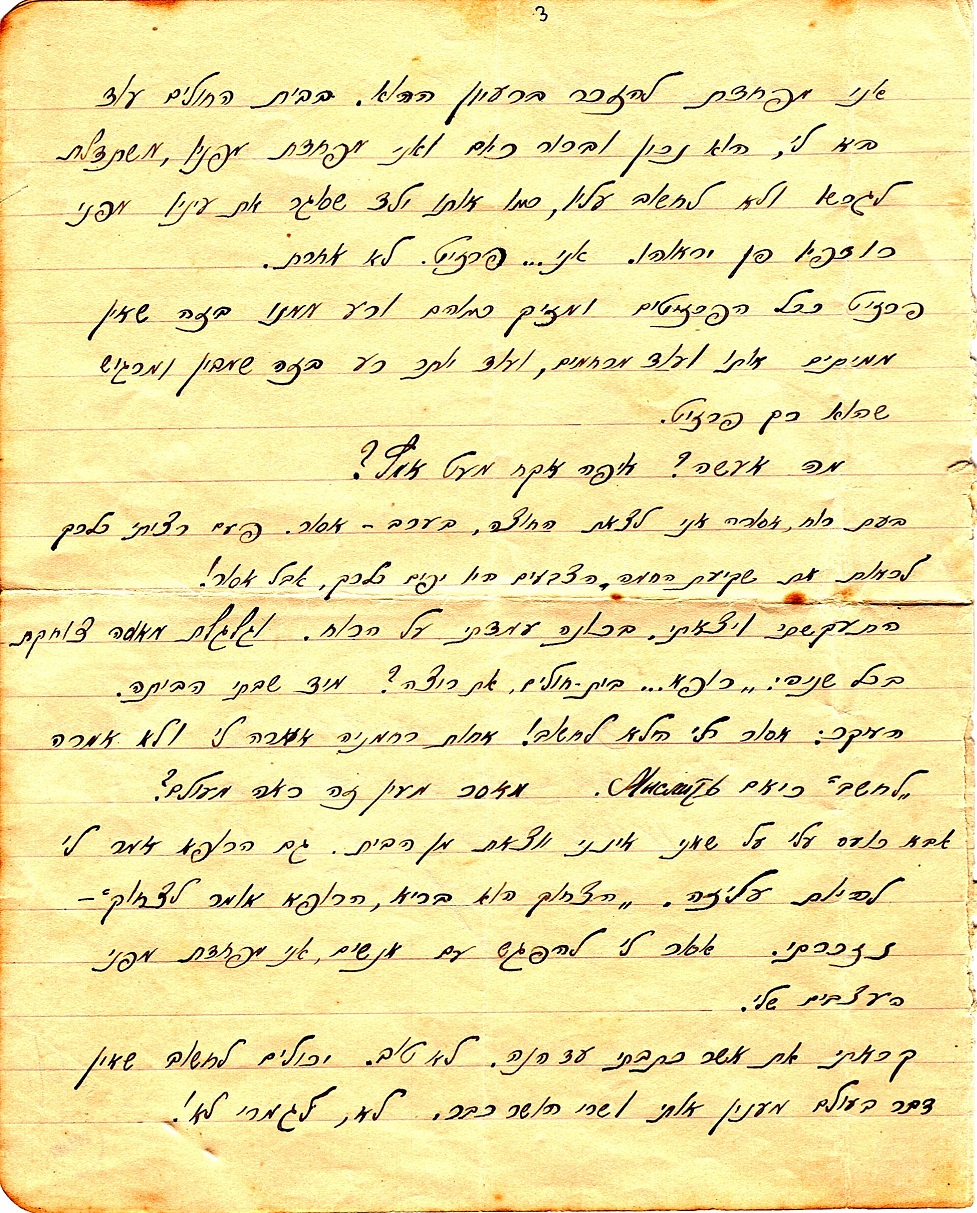 3
אני מפחדת להזכר ברעיון ההוא. בבית החולים עוד
בא לי, הוא נכון וברור כיום ואני מפחדת מפניו, משתדלת
לגרשו ולא לחשוב עליו, כמו אותו ילד שסוגר את עיניו מפני
רודפיו פן יראוהו. אני... פרזיט. לא אחרת.
פרזיט ככל הפרזיטים ומזיק כמוהם ורע ממנו בזה שאין
ממיתים אותו ועוד מרחמים, ועוד יותר רע בזה שמבין ומרגיש
שהוא רק פרזיט.
מה אעשה? איפה אקח מעט אמל?
בעת רוח, אסורה אני לצאת החוצה, בערב – אסור. פעם רציתי כל כך
לראות את שקיעת החמה, הצבעים היו יפים כל כך, אבל אסור!
התעקשתי ויצאתי. בכוונה עמדתי על הרוח. וגלגלת מאסה צוחקת
בכל שניה: „רופא... בית-חולים, את רוצה? מיד שבתי הביתה.
העיקר: אסור לי לחשוב! אחות רחמניה אמרה לי ולא אמרה
„לחשב" כיאם. מאסר מעין זה ראה מעולם?
אבא כועס עלי על שאני אינני יוצאת מן הבית. גם הרופא אמר לי
להיות עליזה. „הצחוק הוא בריא, הרופא אומר לצחוק" –
נזכרתי. אסור לי להפגש עם אנשים, אני מפחדת מפני
העצבים שלי.
קראתי את אשר כתבתי עד הנה. לא טוב. יכולים לחשוב שאין
דבר בעולם מענין אותי ושרי השר כבר. לא, לגמרי לא!